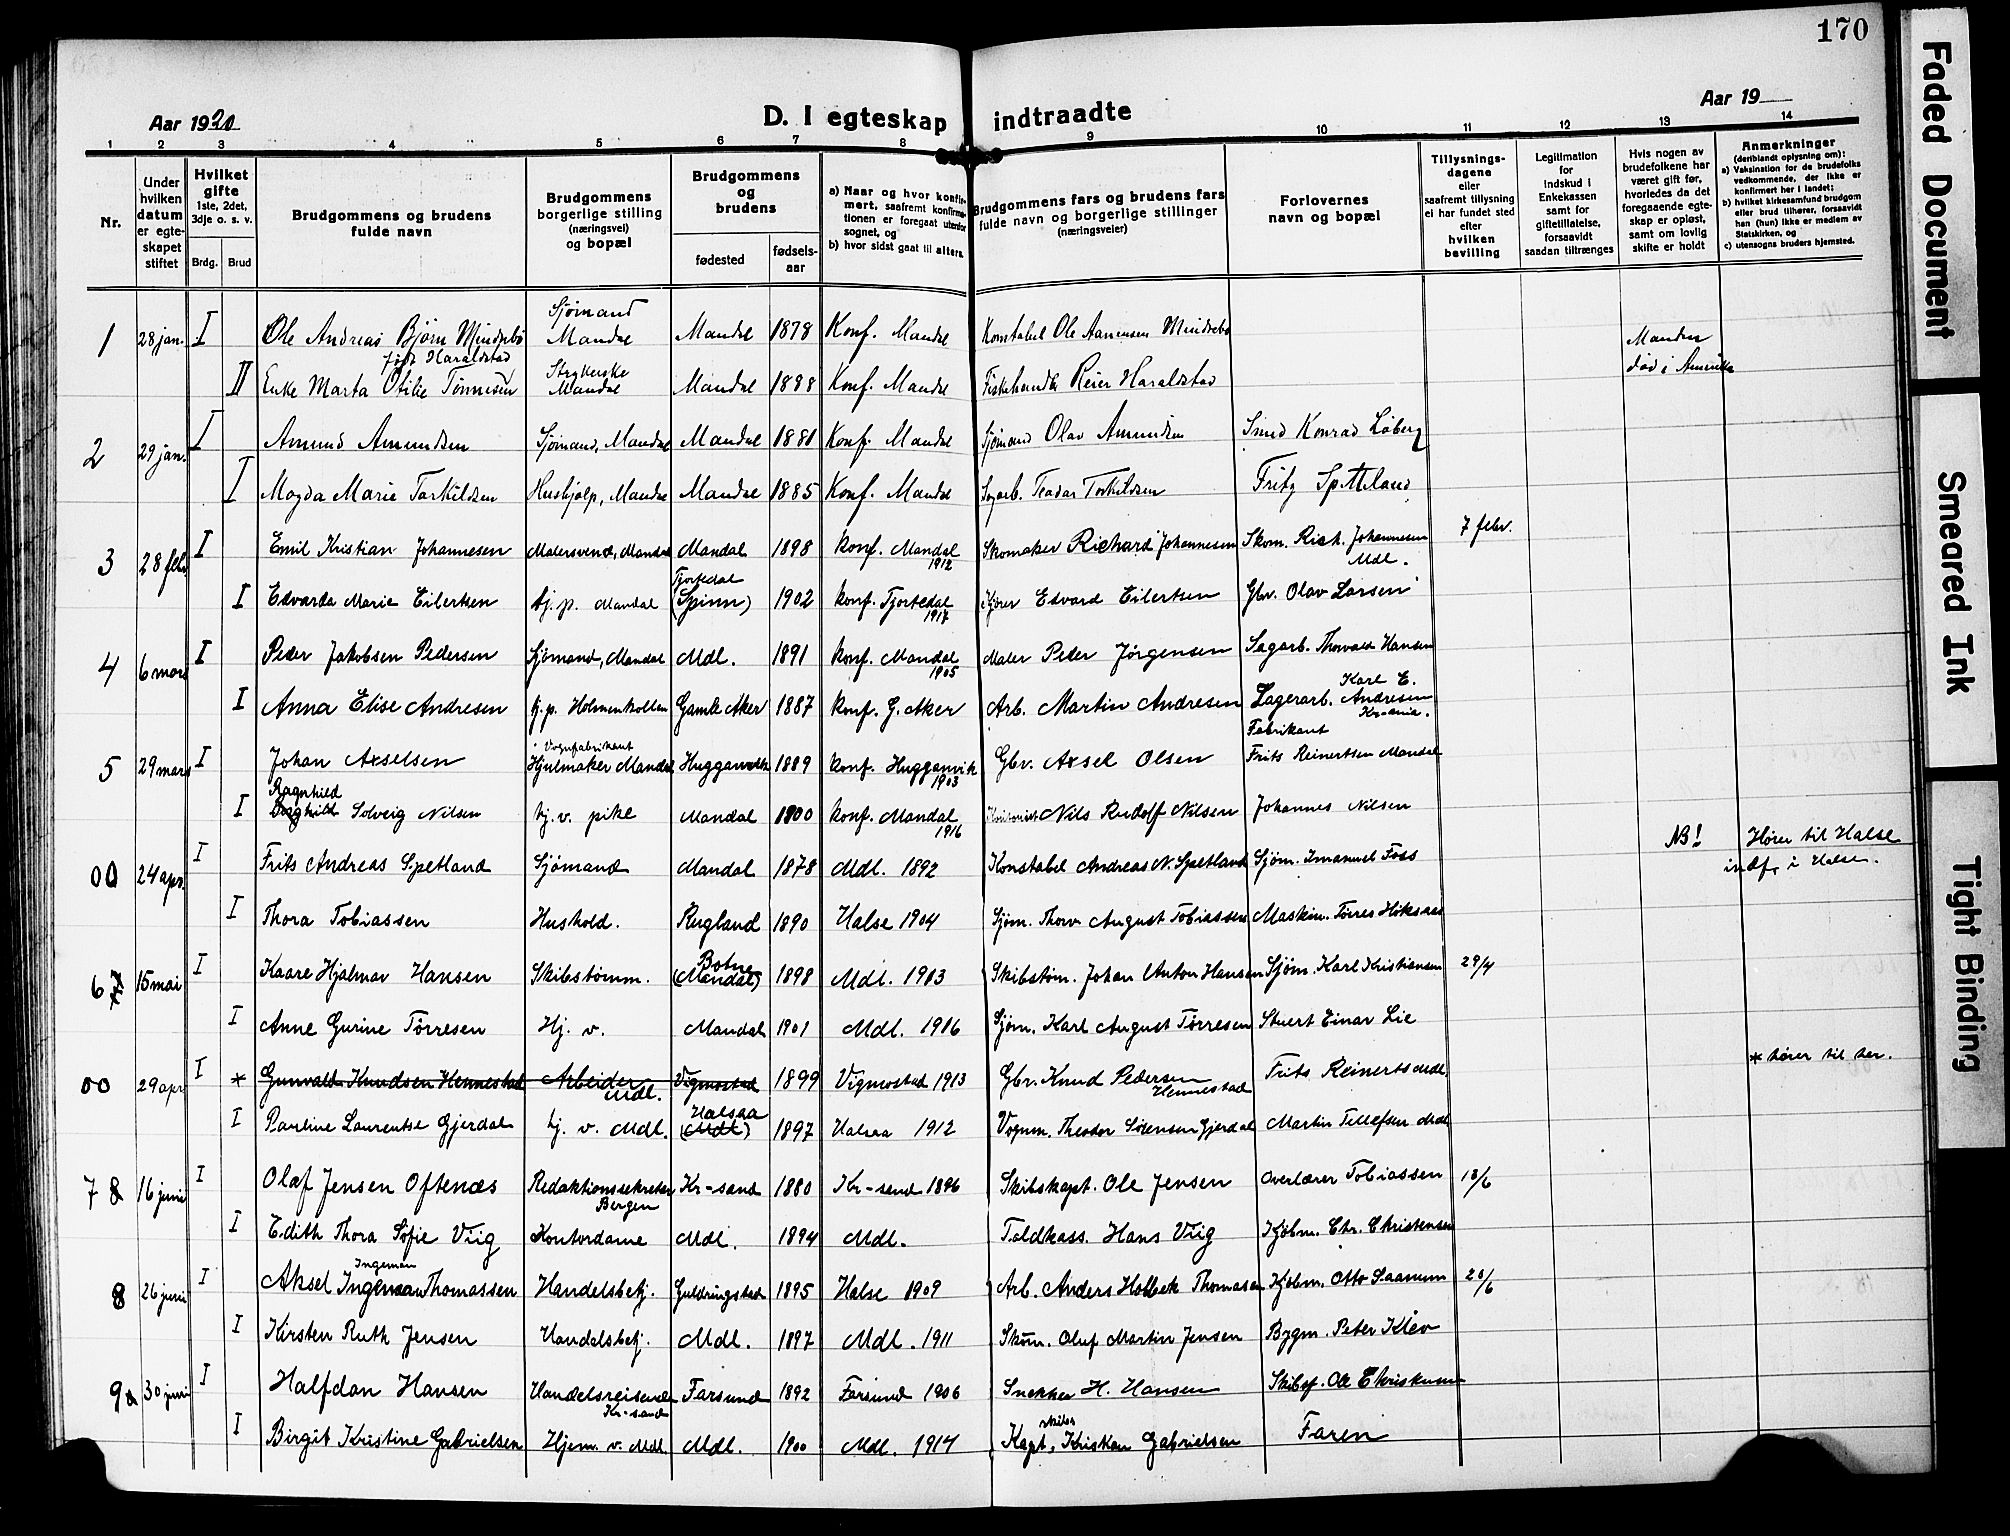 170
Aar 1920
D. I egteskap indtraadte
Aar 19
1 2 3 4 5 6 7 8 9 10 11 12 13 14
Nr.
Under hvilken datum er egteskapet stiftet
Hvilket gifte 1ste, 2det, 3dje o. s. v.
Brdg. Brud
Brudgommens og brudens fulde navn
Brudgommens borgerlige stilling (næringsvei) og bopæl
Brudgommens og brudens
fødested
fødsels-aar
a) Naar og hvor konfirmert, saafremt konfirmationen er foregaat utenfor sognet, og
b) hvor sidst gaat til alters.
Brudgommens fars og brudens fars fulde navn og borgerlige stillinger (næringsveier)
Forlovernes navn og bopæl
Tillysningsdagene eller saafremt tillysning ei har fundet sted efter hvilken bevilling
Legitimation for Indskud i Enkekassen samt for giftetillatelse, forsaavidt saadan tiltrænges
Hvis nogen av brudefolkene har været gift før, hvorledes da det foregaaende egteskap er opløst, samt om lovlig skifte er holdt
Anmerkninger
(deriblandt oplysning om):
a) Vaksination for de brudefolks vedkommende, der ikke er konfirmert her i landet;
b) hvilket kirkesamfund brudgom eller brud tilhører, forsaavidt han (hun) ikke er medlem av Statskirken, og
c) utensogns bruders hjemsted.
1 28 jan. I Ole Andreas Bjørn Mindrebø Sjømand Mandal Mandal 1878 Konf. Mandal Konstabel Ole Aanensen Mindrebø
Manden død i Amerika
II Enke Marta Otilie Tønnesen født Haraldstad Strykerske Mandal Mandal 1888 Konf. Mandal Fiskehandler Reier Haraldstad
2 29 jan. I Amund Amundsen Sjømand, Mandal Mandal 1881 Konf. Mandal Sjømand Olav Amundsen Smed Konrad Løberg
I Magda Marie Torkildsen Hushjelp, Mandal Mandal 1885 Konf. Mandal Sagarb. Teodor Torkildsen Fritz Spetteland
3 28 febr. I Emil Kristian Johannesen Malersvend, Mandal Mandal 1898 konf. Mandal 1912 Skomaker Richard Johannesen Skom. Rich. Johannesen Mdl. 7 febr.
I Edvarda Marie Eilertsen hj. p. Mandal Fjotedal (Spinn) 1902 konf. Fjotedal 1917 Kjører Edvard Eilertsen Gbr. Olav Larsen
4 6 mars I Peder Jakobsen Pedersen Sjømand, Mandal Mdl. 1891 konf. Mandal 1905 Maler Peder Jørgensen Sagarb. Thorvald Hansen
I Anna Elise Andresen hj. p. Holmenkollen Gamle Aker 1887 konf. G. Aker Arb. Martin Andresen Lagerarb. Karl E. Andresen Kr-ania.
5 29 mars I Johan Axselsen Vognfabrikant Hjulmaker Mandal Hugganvik 1889 konf. Hugganvik 1903 Gbr. Axsel Olsen Fabrikant Frits Reinertsen Mandal
I Ragnhild Borghild Solveig Nilsen hj. v. pike Mandal 1900 konf. Mandal 1916 Nils Rudolf Nilsen Johannes Nilsen
00 24 apr. I Frits Andreas Spetland Sjømand Mandal 1878 Mdl. 1892 Konstabel Andreas N. Spetland Sjøm. Imanuel Foss NB! Hører til Halse indf. i Halse.
I Thora Tobiassen Hushold. Rugland 1890 Halse 1904 Sjøm. Thorv August Tobiassen Maskin. Tørres Höksaas
6 7 15 mai I Kaare Hjalmar Hansen Skibstømm. Botne (Mandal) 1898 Mdl. 1913 Skibstøm. Johan Anton Hansen Sjøm. Karl Kristiansen 29/4
I Anne Gurine Tørresen Hj. v. Mandal 1901 Mdl. 1916 Sjøm. Karl August Tørresen Stuert Einar Lie
00 29 apr I * Gunvald Knudsen Hennestad Arbeider Mdl. Vigmostad 1899 Vigmostad 1913 Gbr. Knud Pedersen Hennestad Frits Reinerts Mdl. * hører til her.
I Pauline Laurentse Gjerdal hj. v. Mdl. Halsaa (Mdl) 1897 Halsaa 1912 Vognm. Theodor Sørensen Gjerdal Martin Tellefsen Mdl
7 8 16 juni I Olaf Jensen Oftenæs Redaktionssekretær Bergen Kr-sand 1880 Kr-sand 1896 Skibskapt. Ole Jensen Overlærer Tobiassen 13/6
I Edith Thora Sofie Viig Kontordame Mdl. 1894 Mdl. Toldkass. Hans Viig Kjøbm. Chr. Christensen
8 26 juni I Aksel Ingeman Ingeman Thomassen Handelsbetj. Guldringstad 1895 Halse 1909 Arb. Anders Holbek Thomassen Kjøbm. Otto Saanum 20/6
I Kirsten Ruth Jensen Handelsbetj. Mdl. 1897 Mdl. 1911 Skom. Oluf Martin Jensen Bygm. Peter Kleo
9 30 juni I Halfdan Hansen Handelsreisende Kr-sand Farsund 1892 Farsund 1906 Snekker H. Hansen Skibsf. Ole Christensen
I Birgit Kristine Gabrielsen Hjem. v. Mdl. Mdl. 1900 Mdl. 1914 skibs Kapt. Kristian Gabrielsen Faren
Faded Document
Smeared Ink
Tight Binding